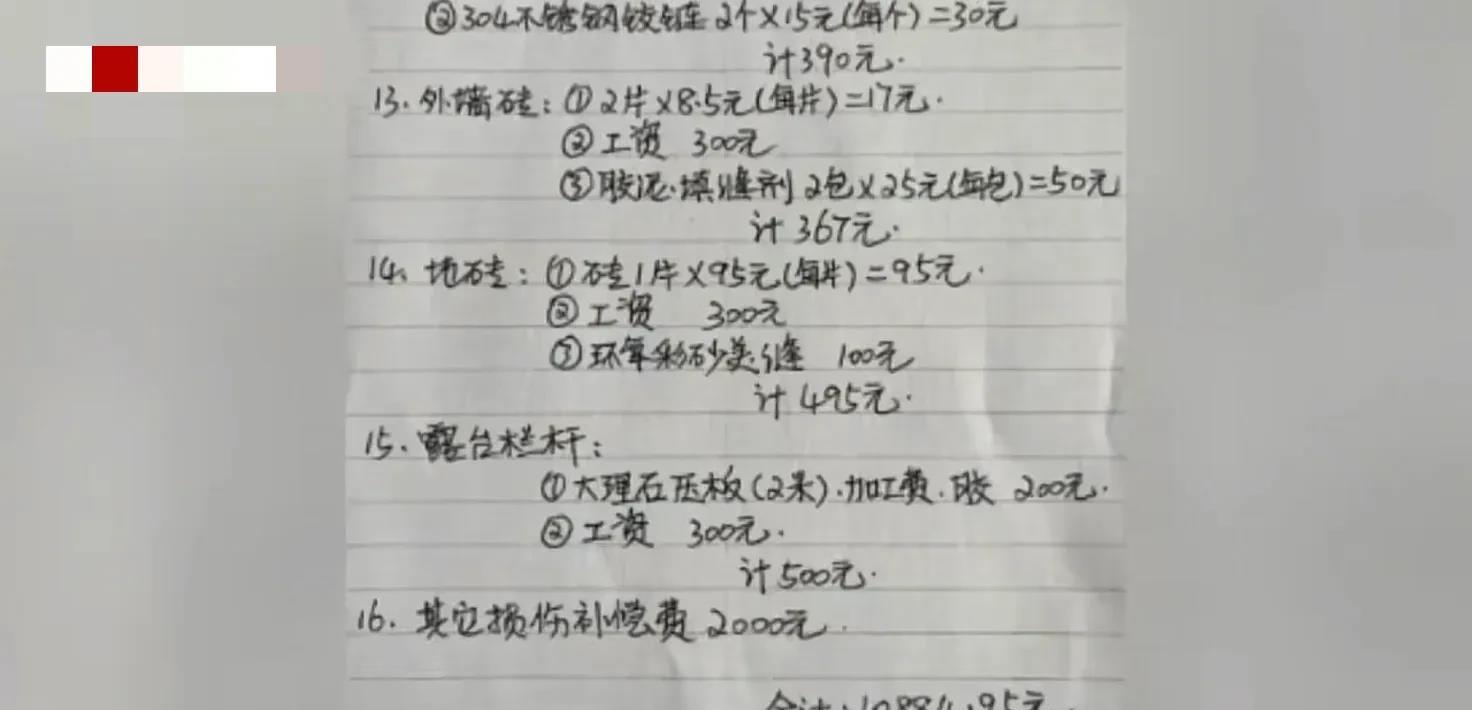 ②304不锈钢铰链 2个×15元(每个)=30元
计390元.
13. 外墙砖：①2片×8.5元(每片)=17元.
②工资 300元
③胶泥.填缝剂 2包×25元(每包)=50元
计367元.
14. 地砖：①砖1片×95元(每片)=95元.
②工资 300元
③环氧彩砂美缝 100元
计495元.
15. 露台栏杆：
①大理石压板(2米).加工费.胶 200元.
②工资 300元.
计500元.
16. 其它损伤补偿费 2000元.
合计：